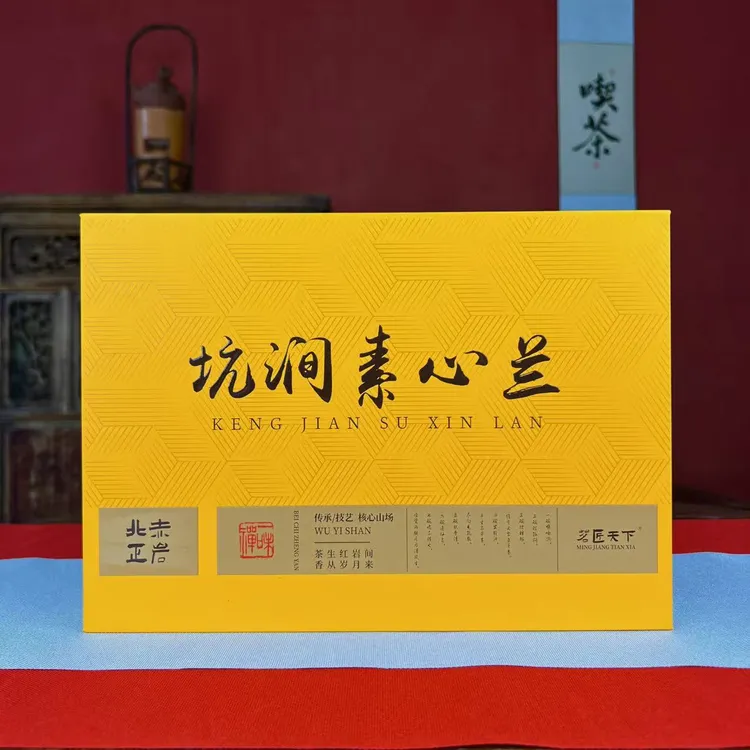 喫茶
坑涧素心兰
KENG JIAN SU XIN LAN
北赤
正岩
一味
禪
BEI CHI ZHENG YAN
传承/技艺 核心山场
WU YI SHAN
茶生红岩间
香从岁月来
茗匠天下
MING JIANG TIAN XIA